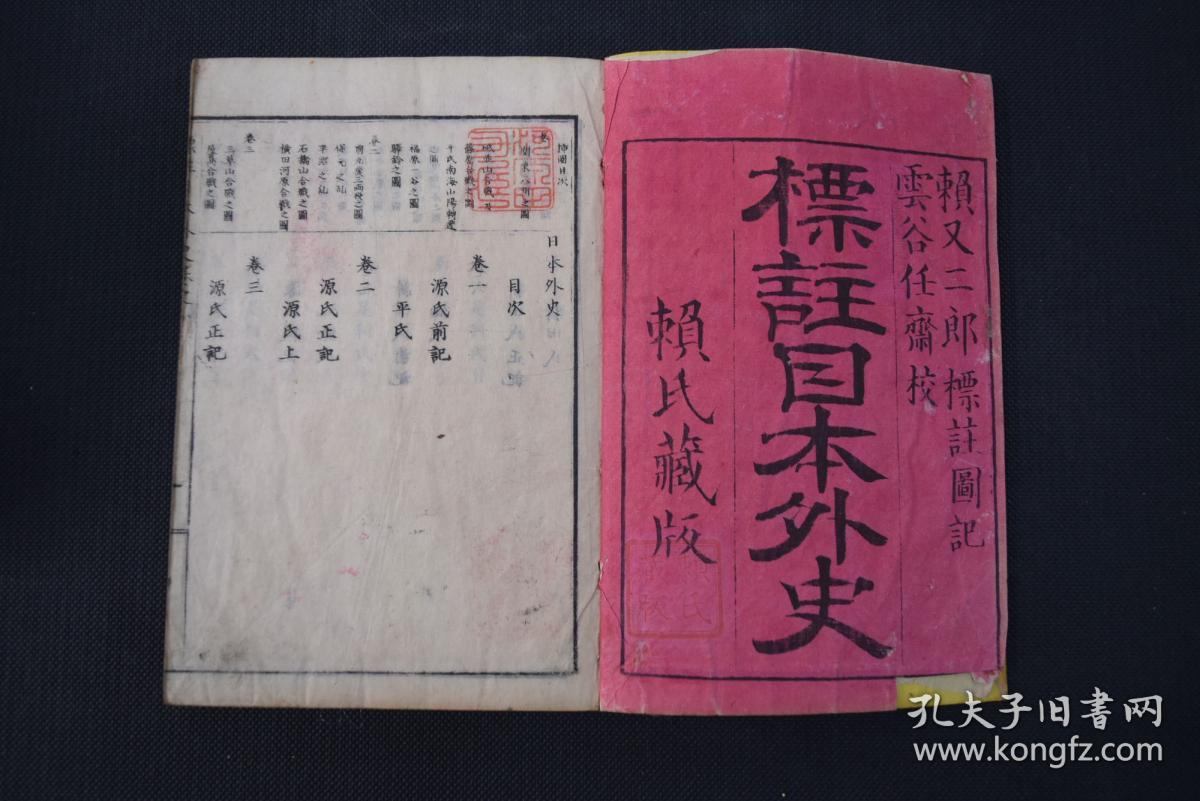 賴又二郎標註圖記
雲谷任齋校
標註日本外史
賴氏藏版
插圖目次
平氏南海山陽轉
福原一谷之圖
卷二
保元之亂
平治之亂
石橋山合戰之圖
橫田河原合戰之圖
卷三
三草山合戰之圖
合戰之圖
日本外史
目次
卷一
源氏前記
平氏
卷二
源氏正記
源氏上
卷三
源氏正記
孔夫子旧書网
www.kongfz.com